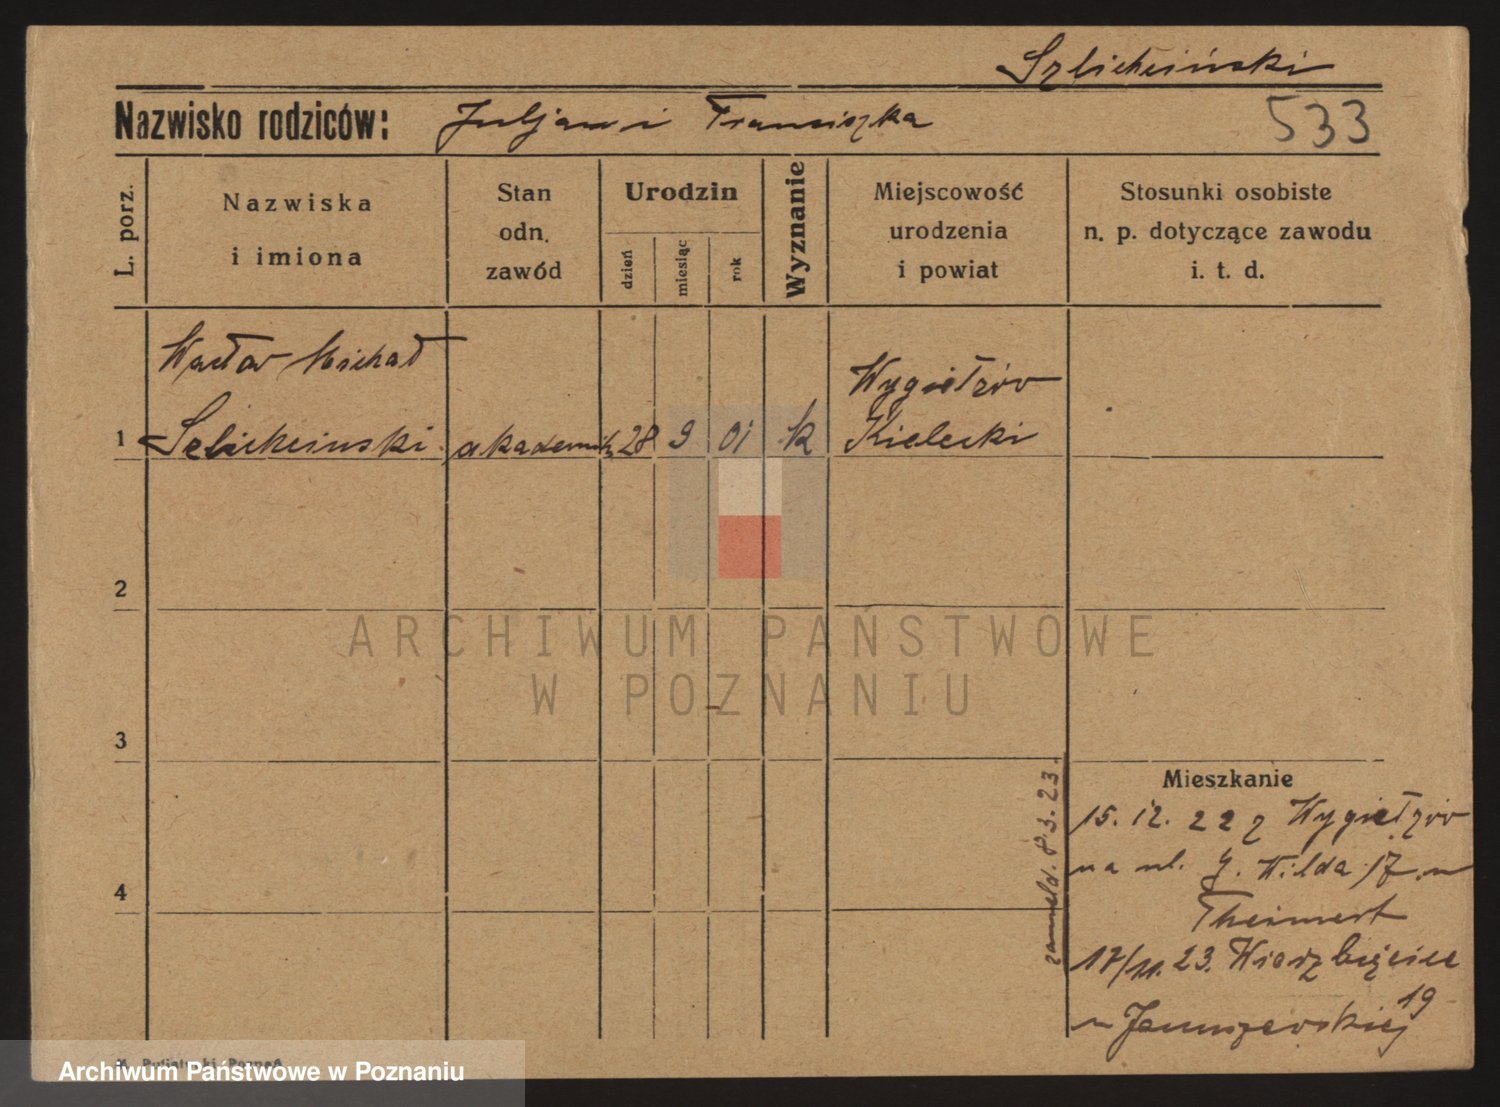 Szlichciński
Nazwisko rodziców: Juljan i Franciszka 533
L. porz.
Nazwiska
i imiona
Stan
odn.
zawód
Urodzin
dzień
miesiąc
rok
Wyznanie
Miejscowość
urodzenia
i powiat
Stosunki osobiste
n. p. dotyczące zawodu
i. t. d.
Wacław Michał
1 Szlichcinski akademik 28 9 01 k
Wygiełzów
Kielecki
2
ARCHIWUM PAŃSTWOWE
W POZNANIU
3
4
zameld. 8.3.23.
Mieszkanie
15.12.22 z Wygiełzów
na ul. G. Wilda 17 u
Theimert
17/11.23. Wierzbięcice
19
u Januszewskiej
Poznań
Archiwum Państwowe w Poznaniu